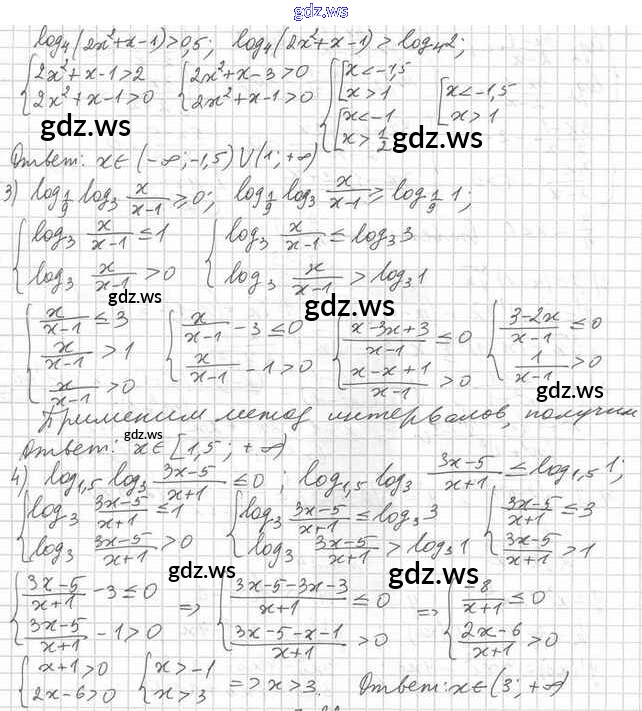 gdz.ws
log₄(2x²+x-1)>0,5; log₄(2x²+x-1)>log₄2;
{2x²+x-1>2 {2x²+x-3>0 {[x<-1,5 [x<-1,5
{2x²+x-1>0 {2x²+x-1>0 [x>1 [x>1
[x<-1
[x>1/2
gdz.ws gdz.ws
Ответ: x∈(-∞;-1,5)∪(1;+∞)
3) log_{1/9} log₃ x/(x-1) ≥0; log_{1/9} log₃ x/(x-1) ≥ log_{1/9} 1;
{log₃ x/(x-1) ≤1 {log₃ x/(x-1) ≤ log₃3
{log₃ x/(x-1) >0 {log₃ x/(x-1) > log₃1
gdz.ws gdz.ws
{x/(x-1) ≤3 {x/(x-1) -3≤0 {(x-3x+3)/(x-1) ≤0 {(3-2x)/(x-1) ≤0
{x/(x-1) >1 {x/(x-1) -1>0 {(x-x+1)/(x-1) >0 {1/(x-1) >0
{x/(x-1) >0
gdz.ws
Применим метод интервалов, получим
gdz.ws
Ответ: x∈[1,5;+∞)
4) log₁,₅ log₃ (3x-5)/(x+1) ≤0; log₁,₅ log₃ (3x-5)/(x+1) ≤ log₁,₅1;
{log₃ (3x-5)/(x+1) ≤1 {log₃ (3x-5)/(x+1) ≤ log₃3 {(3x-5)/(x+1) ≤3
{log₃ (3x-5)/(x+1) >0 {log₃ (3x-5)/(x+1) > log₃1 {(3x-5)/(x+1) >1
gdz.ws gdz.ws
{(3x-5)/(x+1) -3≤0 => {(3x-5-3x-3)/(x+1) ≤0 => {-8/(x+1) ≤0
{(3x-5)/(x+1) -1>0 {(3x-5-x-1)/(x+1) >0 {(2x-6)/(x+1) >0
{x+1>0 {x>-1 => x>3. Ответ: x∈(3;+∞)
{2x-6>0 {x>3